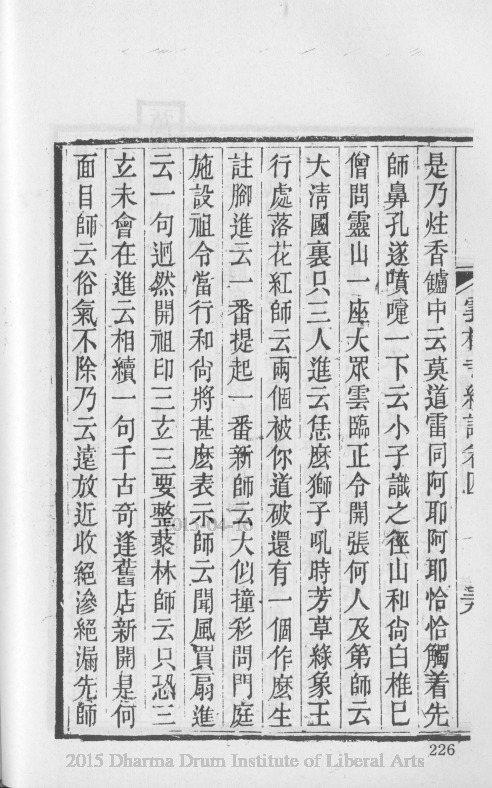 是乃炷香鑪中云莫道雷同阿耶阿耶恰恰觸着先
師鼻孔遂噴嚏一下云小子識之徑山和尙白椎巳
僧問靈山一座大眾雲臨正令開張何人及第師云
大淸國裏只三人進云恁麽獅子吼時芳草綠象王
行處落花紅師云兩個被你道破還有一個作麽生
註腳進云一番提起一番新師云大似撞彩問門庭
施設祖令當行和尙將甚麽表示師云聞風買扇進
云一句逈然開祖印三玄三要整藂林師云只恐三
玄未會在進云相續一句千古奇逢舊店新開是何
面目師云俗氣不除乃云遠放近收絕滲絕漏先師
226
2015 Dharma Drum Institute of Liberal Arts